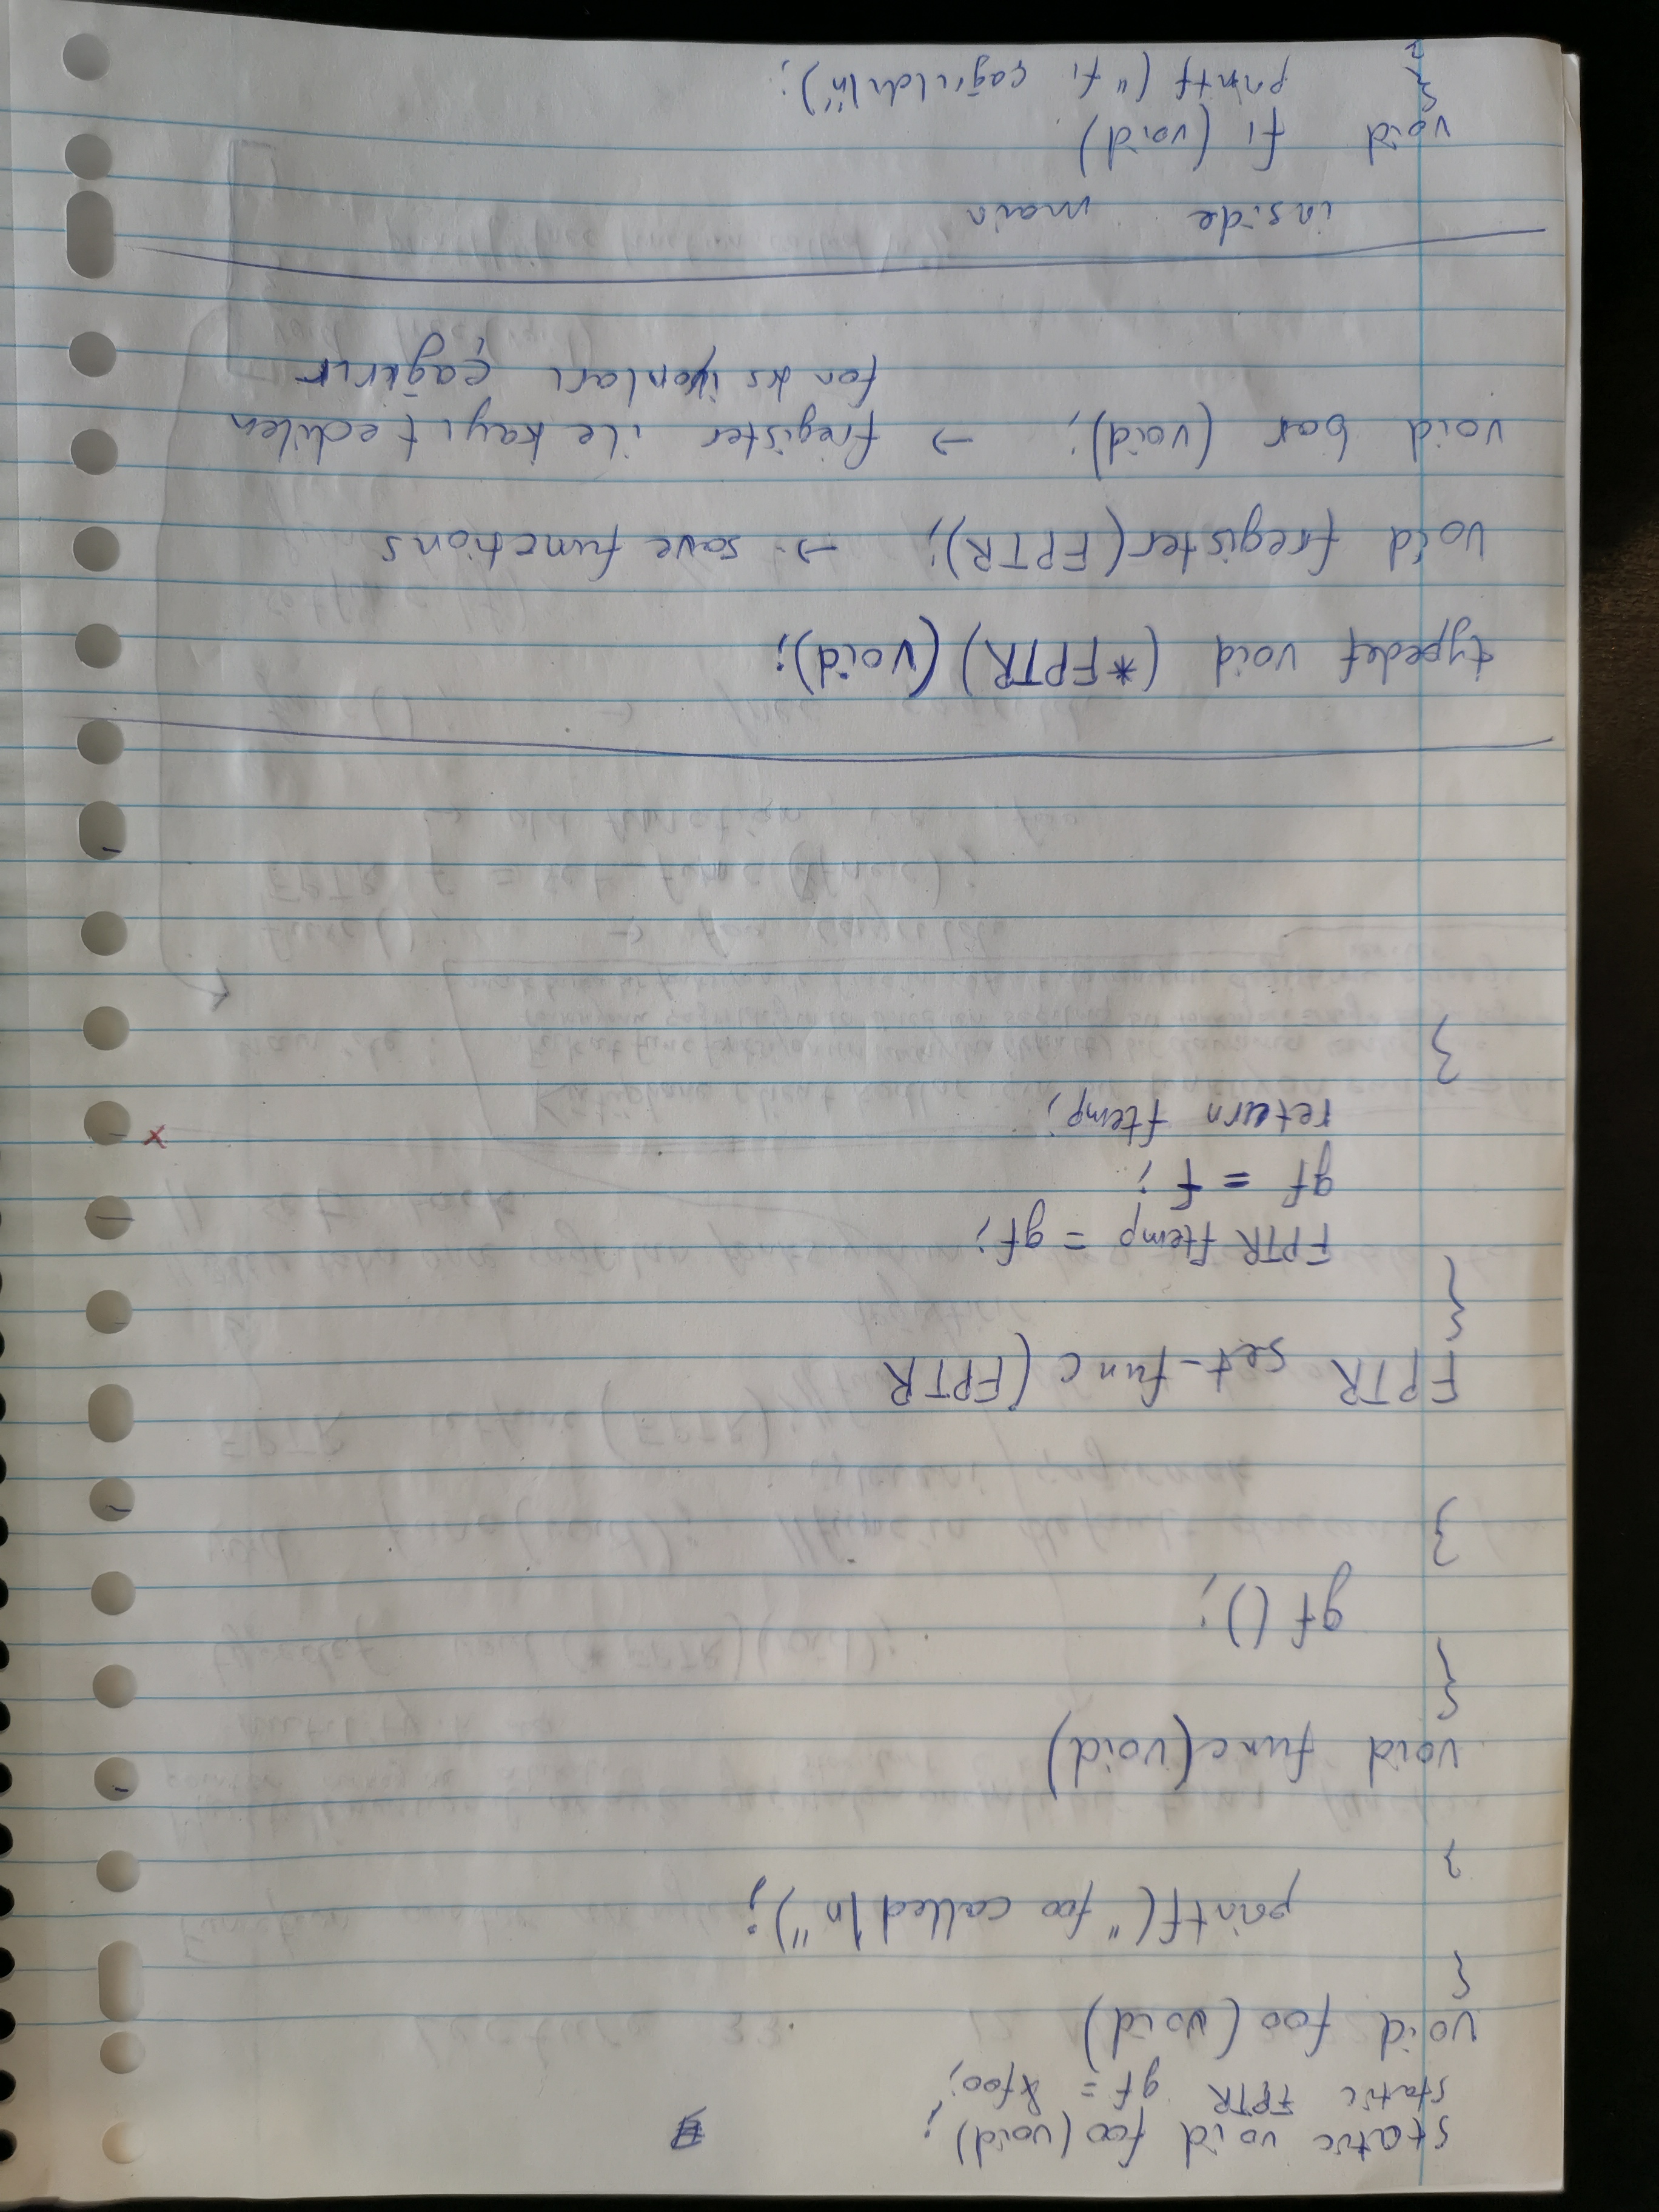 static void foo(void);
static FPTR gf = &foo;
void foo(void)
{
printf("foo called\n");
}
void func(void)
{
gf();
}
FPTR set-func(FPTR
{
FPTR ftemp = gf;
gf = f;
return ftemp;
}
typedef void (*FPTR)(void);
void fregister(FPTR); → save functions
void bar (void); → fregister ile kayıt edilen
fonksiyonları çağırır
inside main
void f1 (void)
{ printf ("f1 çağrıldı\n");
}